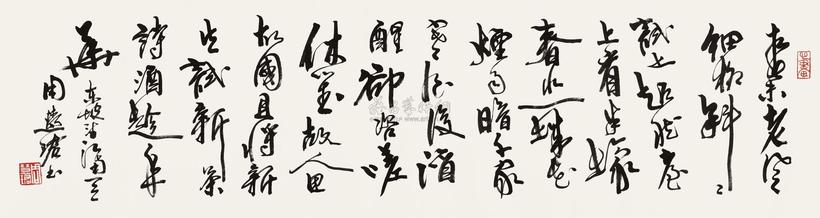 春未老風
細柳斜〻
試上超然臺
上看半壕
春水一城花
煙雨暗千家
寒食後酒
醒卻咨嗟
休對故人思
故國且將新
火試新茶
詩酒趁年
華
東坡江南
周書